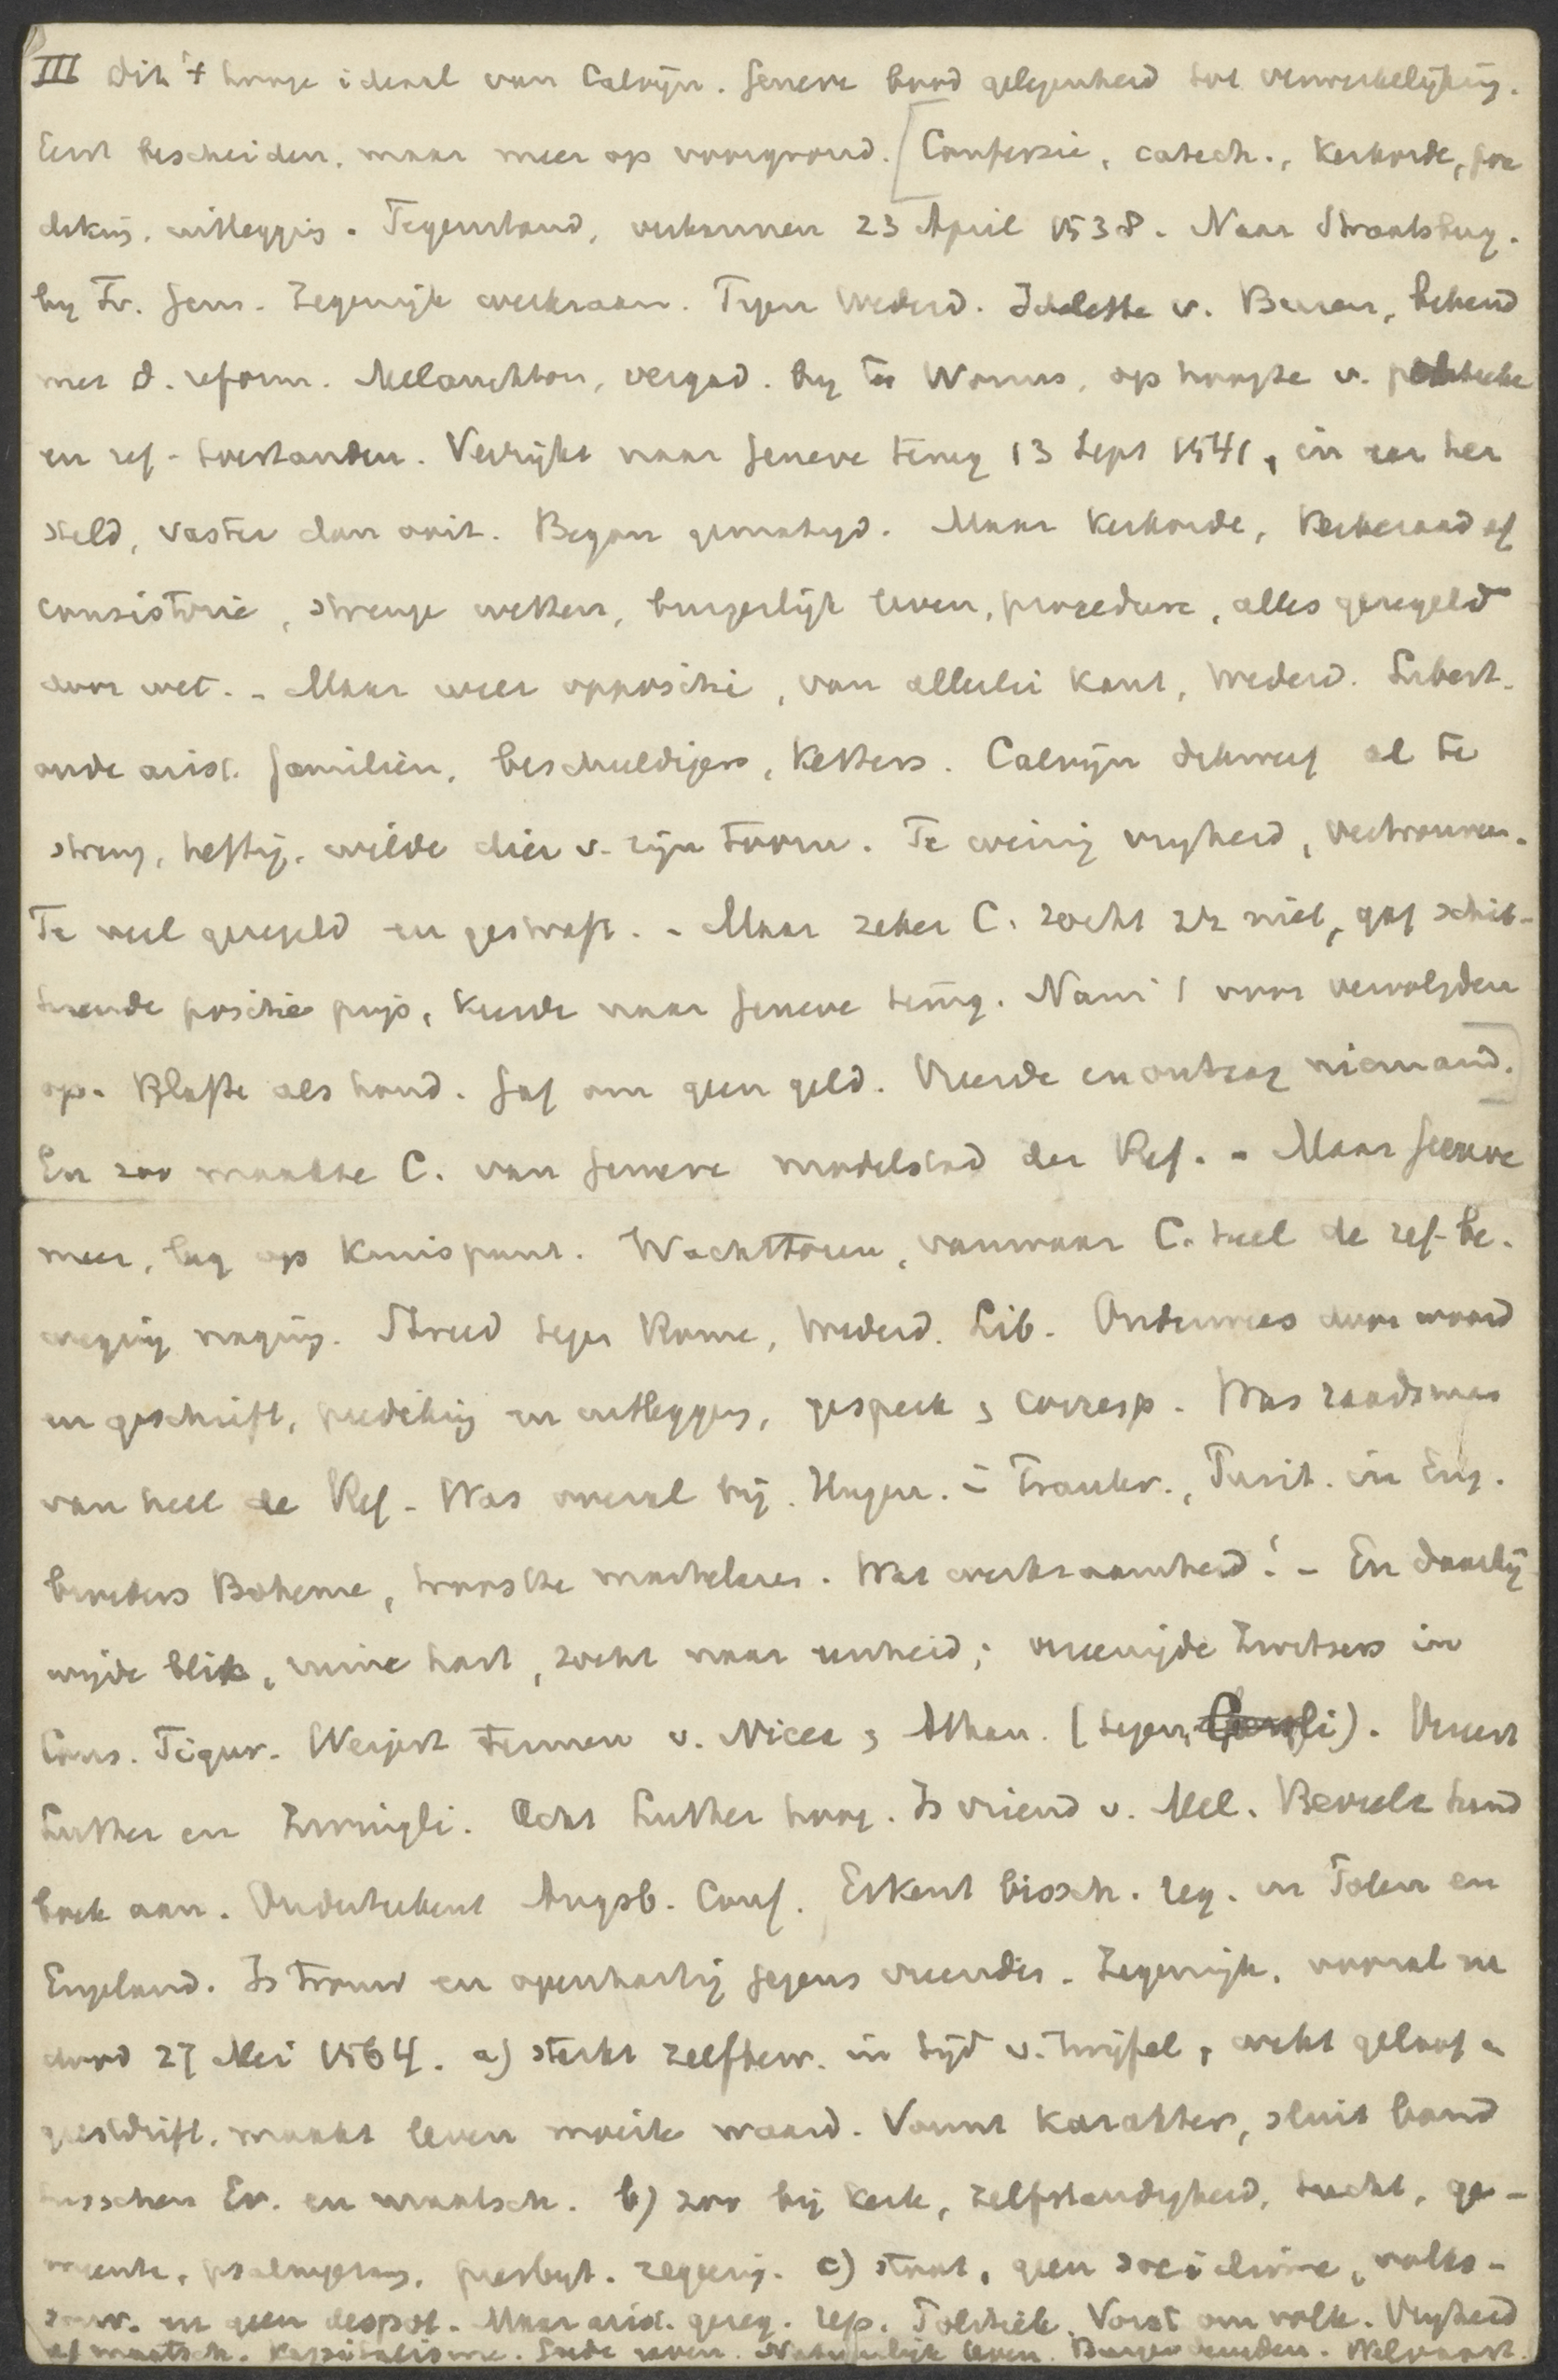 III Dit 't hooge ideaal van Calvijn. Geneve bood gelegenheid tot verwerkelijking.
Eerst bescheiden, maar meer op voorgrond. [Confessie, catech., Kerkorde, pre
diking, uitlegging. Tegenstand, verbannen 23 April 1538. Naar Straatsburg.
by Fr. Gem. Zegenrijk werkzaam. Tegen Wederd. Idelette v. Buren, bekend
met d. reform. Melanchton, vergad. by te Worms, op hoogte v. politieke
en ref. toestanden. Verrijkt naar Geneve terug 13 Sept 1541, in eer her
steld, vaster dan ooit. Begon gematigd. Maar Kerkorde, Kerkeraad of
consistorie, strenge wetten, burgerlijk leven, procedure, alles geregeld
door wet. - Maar weer oppositie, van allerlei kant, Wederd. Libert.
oude arist. familiën, beschuldigers, Ketters. Calvijn dikwerf al te
streng, heftig, wilde dier v. zijn toorn. Te weinig vrijheid, vertrouwen.
Te veel geregeld en gestraft. - Maar zeker C. zocht zich niet, gaf schit-
terende positie prijs, keerde naar Geneve terug. Nam 't voor vervolgden
op. Blafte als hond. Gaf om geen geld. Vreesde en ontzag niemand.]
En zoo maakte C. van Geneve modelstad der Ref. - Maar Geneve
meer, lag op Kruispunt. Wachttoren, vanwaar C. heel de ref. be-
weging naging. Streed tegen Rome, Wederd. Lib. Onderwees door woord
en geschrift, prediking en uitlegging, gesprek & corresp. Was raadsman
van heel de Ref. Was overal bij. Hugen. in Frankr., Purit. in Eng.
broeders Boheme, troostte martelaren. Wat werkzaamheid! - En daarbij
wijde blik, ruime hart, zocht naar eenheid; vereenigde Zwitsers in
Cons. Tigur. Weigert termen v. Nicea & Athan. (tegen Caroli). Vereert
Luther en Zwingli. Acht Luther hoog. Is vriend v. Mel. Beveelt hand
boek aan. Onderteekent Augsb. Conf. Erkent bissch. reg. in Polen en
Engeland. Is trouw en openhartig jegens vrienden. Zegenrijk, vooral na
dood 27 Mei 1564. a) sterkt zelfbew. in tijd v. twijfel, wekt geloof en
geestdrift, maakt leven moeite waard. Vormt karakters, sluit band
tusschen Ev. en maatsch. b) zoo bij Kerk, zelfstandigheid, tucht, ge-
meente, psalmgezang, presbyt. regering. c) staat, geen volks-
souv. en geen despot. Maar arist. gereg. rep. Politiek. Vorst om volk. Vrijheid
of maatsch. Kapitalisme. Goede zeden. Natuurlijk leven. Burgerdeugden. Welvaart.